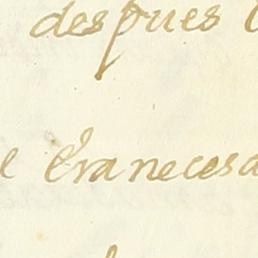 despues
era necesa